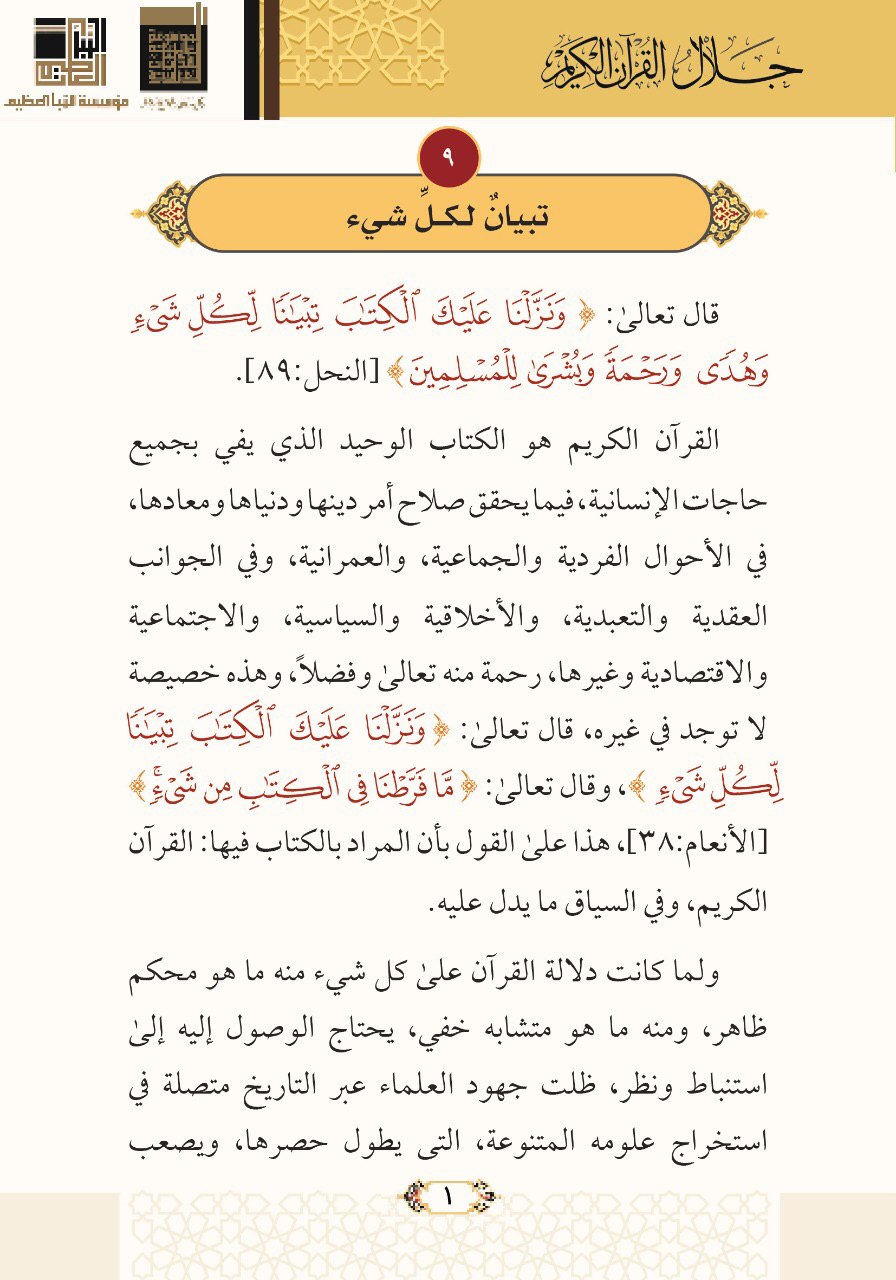 جلال القرآن الكريم
مؤسسة النبأ العظيم
٩
تبيانٌ لكلِّ شيء
قال تعالىٰ: ﴿ وَنَزَّلْنَا عَلَيْكَ ٱلْكِتَٰبَ تِبْيَٰنًا لِّكُلِّ شَىْءٍ
وَهُدًى وَرَحْمَةً وَبُشْرَىٰ لِلْمُسْلِمِينَ ﴾ [النحل:٨٩].
القرآن الكريم هو الكتاب الوحيد الذي يفي بجميع
حاجات الإنسانية، فيما يحقق صلاح أمر دينها ودنياها ومعادها،
في الأحوال الفردية والجماعية، والعمرانية، وفي الجوانب
العقدية والتعبدية، والأخلاقية والسياسية، والاجتماعية
والاقتصادية وغيرها، رحمة منه تعالىٰ وفضلاً، وهذه خصيصة
لا توجد في غيره، قال تعالىٰ: ﴿ وَنَزَّلْنَا عَلَيْكَ ٱلْكِتَٰبَ تِبْيَٰنًا
لِّكُلِّ شَىْءٍ ﴾، وقال تعالىٰ: ﴿ مَّا فَرَّطْنَا فِى ٱلْكِتَٰبِ مِن شَىْءٍۚ ﴾
[الأنعام:٣٨]، هذا علىٰ القول بأن المراد بالكتاب فيها: القرآن
الكريم، وفي السياق ما يدل عليه.
ولما كانت دلالة القرآن علىٰ كل شيء منه ما هو محكم
ظاهر، ومنه ما هو متشابه خفي، يحتاج الوصول إليه إلىٰ
استنباط ونظر، ظلت جهود العلماء عبر التاريخ متصلة في
استخراج علومه المتنوعة، التى يطول حصرها، ويصعب
١